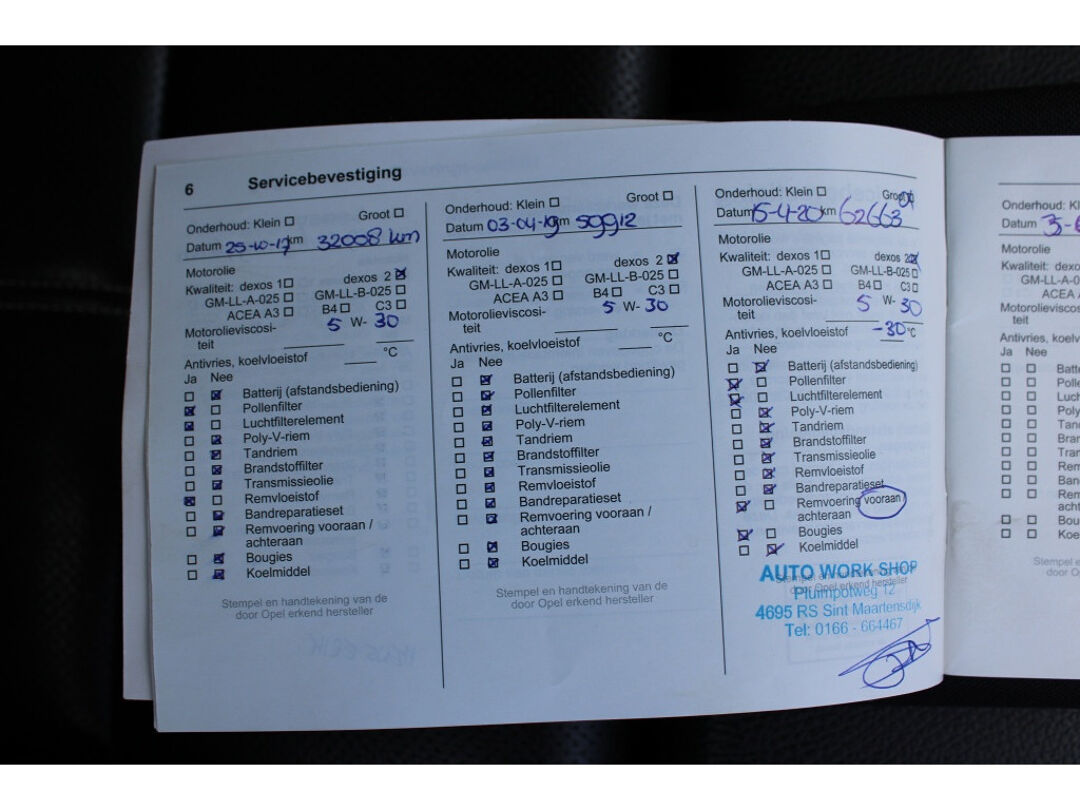 6 Servicebevestiging
Onderhoud: Klein ☐ Groot ☐
Datum 25-10-17 km 32008 km
Motorolie
Kwaliteit: dexos 1 ☐ dexos 2 ☒
GM-LL-A-025 ☐ GM-LL-B-025 ☐
ACEA A3 ☐ B4 ☐ C3 ☐
Motorolieviscosi- 5 W- 30
teit
Antivries, koelvloeistof °C
Ja Nee
☐ ☒ Batterij (afstandsbediening)
☒ ☐ Pollenfilter
☒ ☐ Luchtfilterelement
☐ ☒ Poly-V-riem
☐ ☒ Tandriem
☐ ☒ Brandstoffilter
☐ ☒ Transmissieolie
☒ ☐ Remvloeistof
☐ ☒ Bandreparatieset
☐ ☒ Remvoering vooraan /
achteraan
☐ ☒ Bougies
☐ ☒ Koelmiddel
Stempel en handtekening van de
door Opel erkend hersteller
Onderhoud: Klein ☐ Groot ☐
Datum 03-04-19 km 59912
Motorolie
Kwaliteit: dexos 1 ☐ dexos 2 ☒
GM-LL-A-025 ☐ GM-LL-B-025 ☐
ACEA A3 ☐ B4 ☐ C3 ☐
Motorolieviscosi- 5 W- 30
teit
Antivries, koelvloeistof °C
Ja Nee
☐ ☒ Batterij (afstandsbediening)
☐ ☒ Pollenfilter
☐ ☒ Luchtfilterelement
☐ ☒ Poly-V-riem
☐ ☒ Tandriem
☐ ☒ Brandstoffilter
☐ ☒ Transmissieolie
☐ ☒ Remvloeistof
☐ ☒ Bandreparatieset
☐ ☒ Remvoering vooraan /
achteraan
☐ ☒ Bougies
☐ ☒ Koelmiddel
Stempel en handtekening van de
door Opel erkend hersteller
Onderhoud: Klein ☐ Groot ☒
Datum 15-4-20 km 62663
Motorolie
Kwaliteit: dexos 1 ☐ dexos 2 ☒
GM-LL-A-025 ☐ GM-LL-B-025 ☐
ACEA A3 ☐ B4 ☐ C3 ☐
Motorolieviscosi- 5 W- 30
teit
Antivries, koelvloeistof -30 °C
Ja Nee
☐ ☒ Batterij (afstandsbediening)
☒ ☐ Pollenfilter
☒ ☐ Luchtfilterelement
☐ ☒ Poly-V-riem
☐ ☒ Tandriem
☐ ☒ Brandstoffilter
☐ ☒ Transmissieolie
☐ ☒ Remvloeistof
☐ ☒ Bandreparatieset
☒ ☐ Remvoering vooraan /
achteraan
☒ ☐ Bougies
☐ ☒ Koelmiddel
AUTO WORK SHOP
Pluimpotweg 12
4695 RS Sint Maartensdijk
Tel: 0166 - 664467
Onderhoud: Klein
Datum
Motorolie
Kwaliteit:
Motorolieviscosi-
teit
Ja Nee